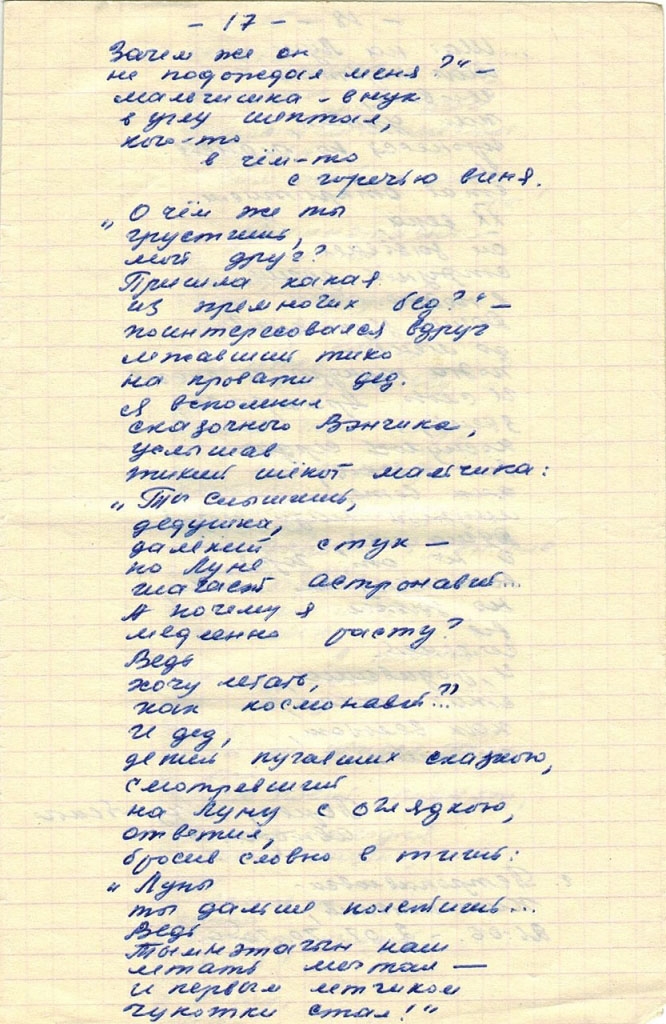 - 17 -
Зачем же он
не подождал меня?" -
мальчишка - внук
в углу шептал,
кого-то
в чём-то
с горечью виня.
„О чём же ты
грустишь,
мой друг?
Пришла какая
из премногих бед?" -
поинтересовался вдруг
лежавший тихо
на кровати дед.
Я вспомнил
сказочного Вэнчика,
услышав
тихий шёпот мальчика:
„Ты слышишь,
дедушка,
далёкий стук -
по Луне
шагает астронавт...
А почему я
медленно расту?
Ведь
хочу летать,
как космонавт..?"
И дед,
детей пугавших сказкою,
смотревший
на Луну с оглядкою,
ответил,
бросив словно в тишь:
„Луны
ты дальше полетишь...
Ведь
Тымнэтагын наш
летать мечтал -
и первым летчиком
Чукотки стал!"